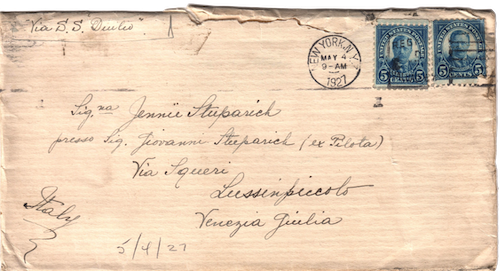 "Via S.S. Duilio"
NEW YORK, N.Y.
MAY 4
9-AM
1927
UNITED STATES POSTAGE
5 CENTS 5
UNITED STATES POSTAGE
5 CENTS 5
Sig.na Jennie Stuparich
presso Sig. Giovanni Stuparich (ex Pilota)
Via Squeri
Lussinpiccolo
Venezia Giulia
Italy
5/4/27